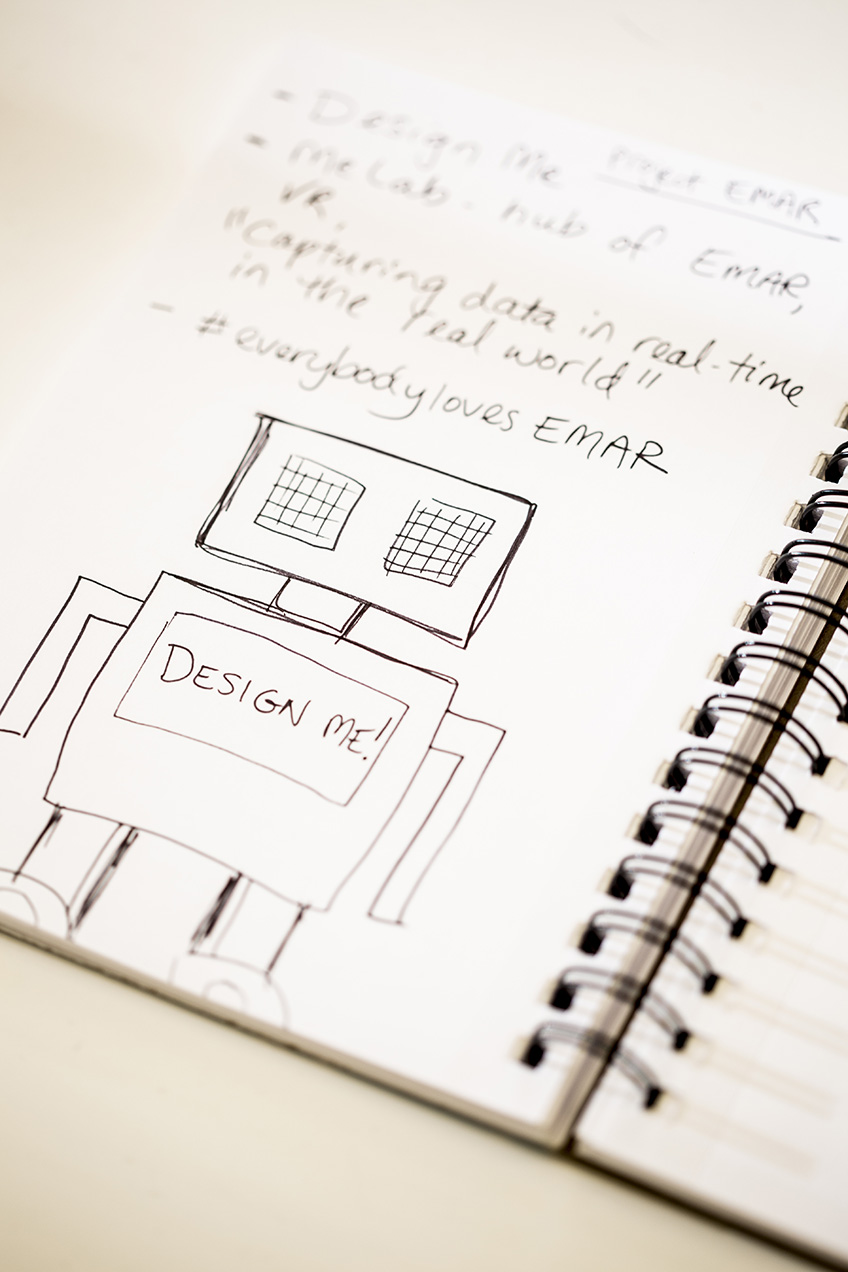 Project EMAR
- Design Me
- Me Lab - hub of EMAR,
VR.
"Capturing data in real-time
in the real world"
- #everybodyloves EMAR
DESIGN ME!